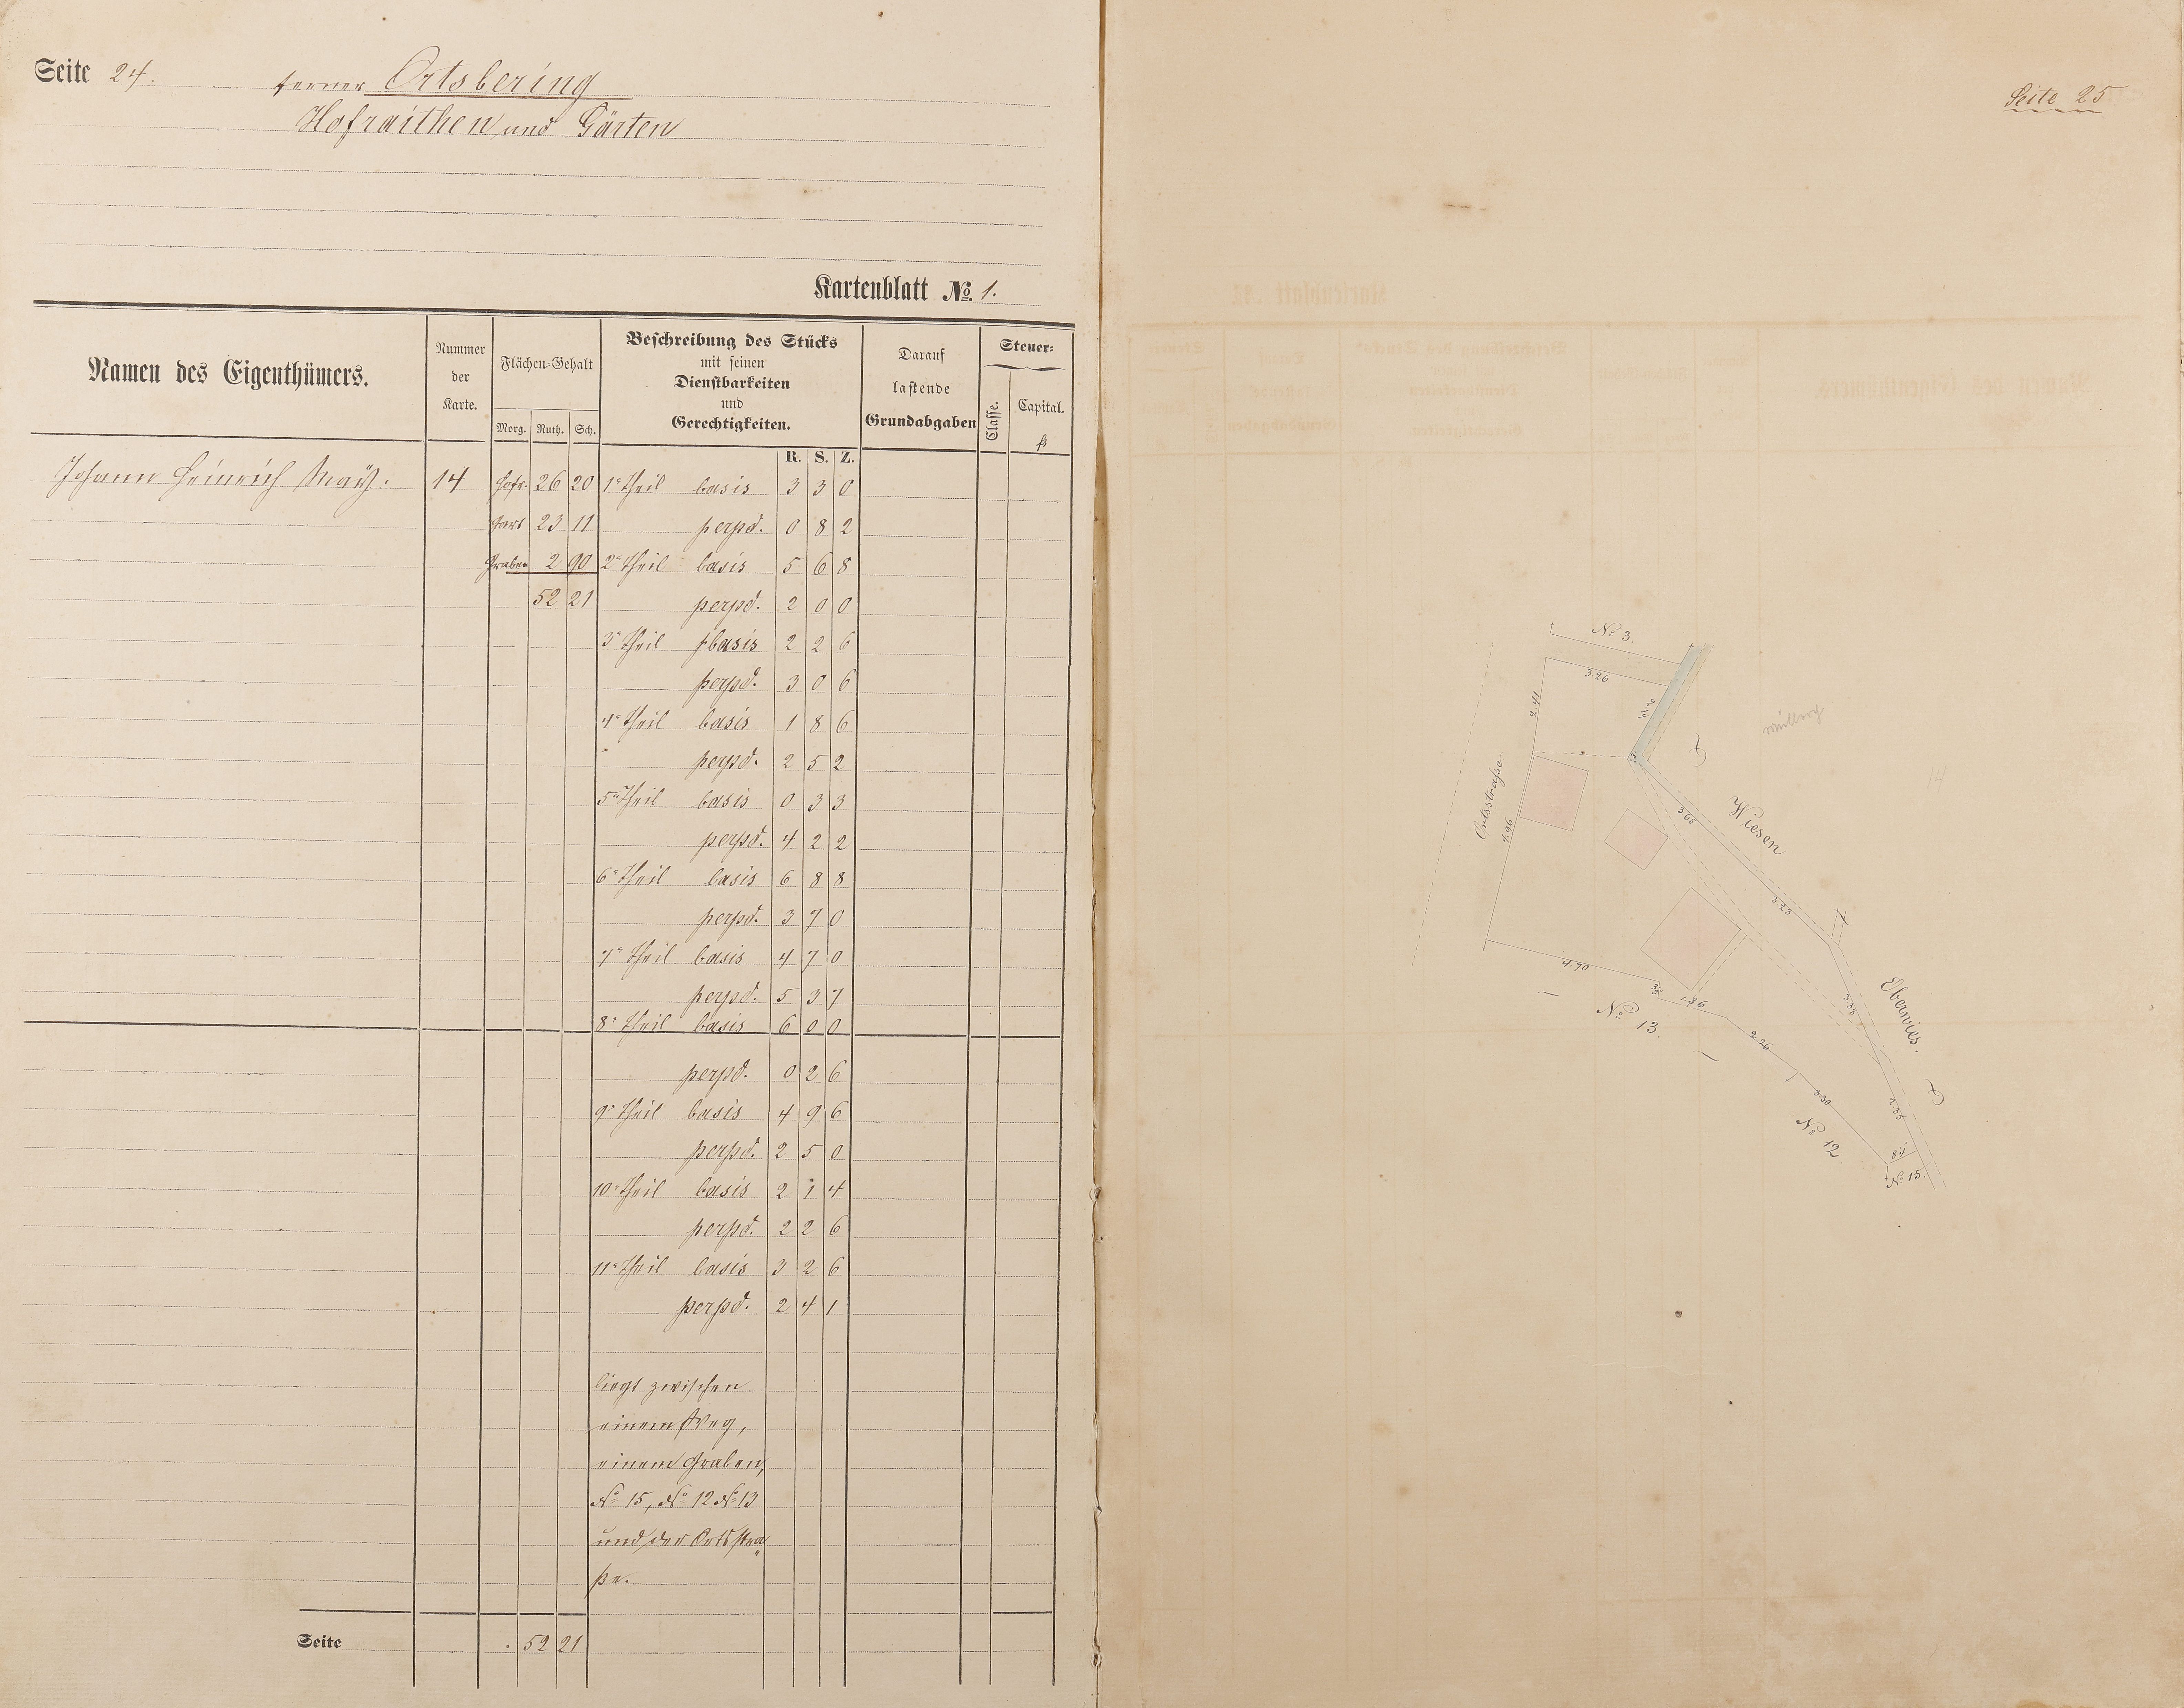 Seite 24.
ferner Ortsbering
Hofraithen und Gärten
Kartenblatt No. 1.
Namen des Eigenthümers.
Nummer der Karte.
Flächen-Gehalt
Morg. Ruth. Sch.
Beschreibung des Stücks
mit seinen
Dienstbarkeiten
und
Gerechtigkeiten.
Darauf
lastende
Grundabgaben
Steuer-
Classe.
Capital.
R. S. Z.
Johann Heinrich 14 Hofr. 26 20 1r Theil basis 3 3 0
Gart 23 11 perpd. 0 8 2
Graben 2 90 2r Theil basis 5 6 8
52 21 perpd. 2 0 0
3r Theil basis 2 2 6
perpd. 3 0 6
4r Theil basis 1 8 6
perpd. 2 5 2
5r Theil basis 0 3 3
perpd. 4 2 2
6r Theil basis 6 8 8
perpd. 3 7 0
7r Theil basis 4 7 0
perpd. 5 3 7
8r Theil basis 6 0 0
perpd. 0 2 6
9r Theil basis 4 9 6
perpd. 2 5 0
10r Theil basis 2 1 4
perpd. 2 2 6
11r Theil basis 3 2 6
perpd. 2 4 1
liegt zwischen
einem Weg,
einem Graben,
No 15, No 12 No 13
und der Ortsstra
ße.
Seite . 52 21
Seite 25
No 3.
3.26
2.41
Ortsstraße
4.96
3.65
Wiesen
3.23
4.90
1.86
No 13.
3.33
Oberwies.
2.26
3.30
2.35
No 12.
84
No 15.